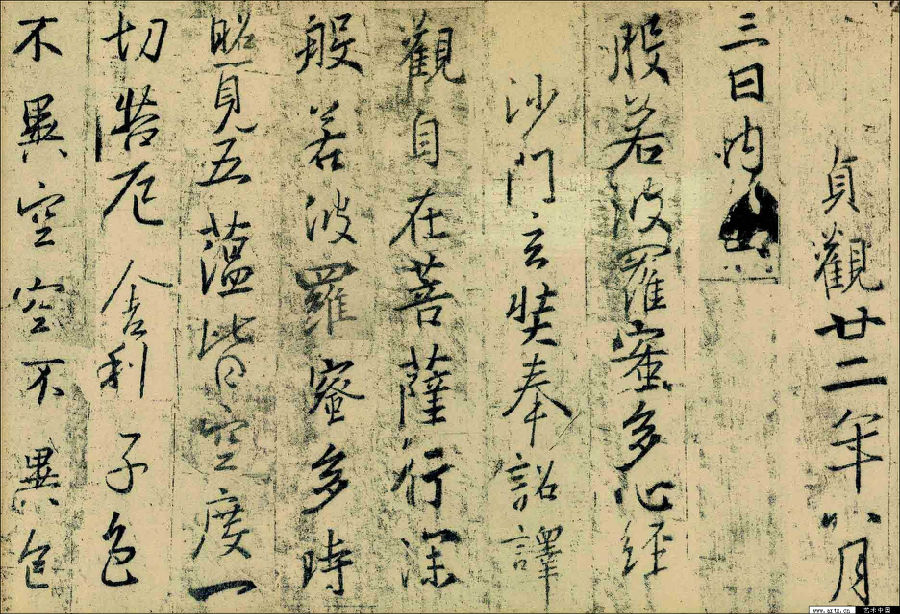 貞觀廿二年八月
三日內出
般若波羅蜜多心經
沙門玄奘奉詔譯
觀自在菩薩行深
般若波羅蜜多時
照見五蘊皆空度一
切苦厄舍利子色
不異空空不異色
www.arts.cn 艺术中国